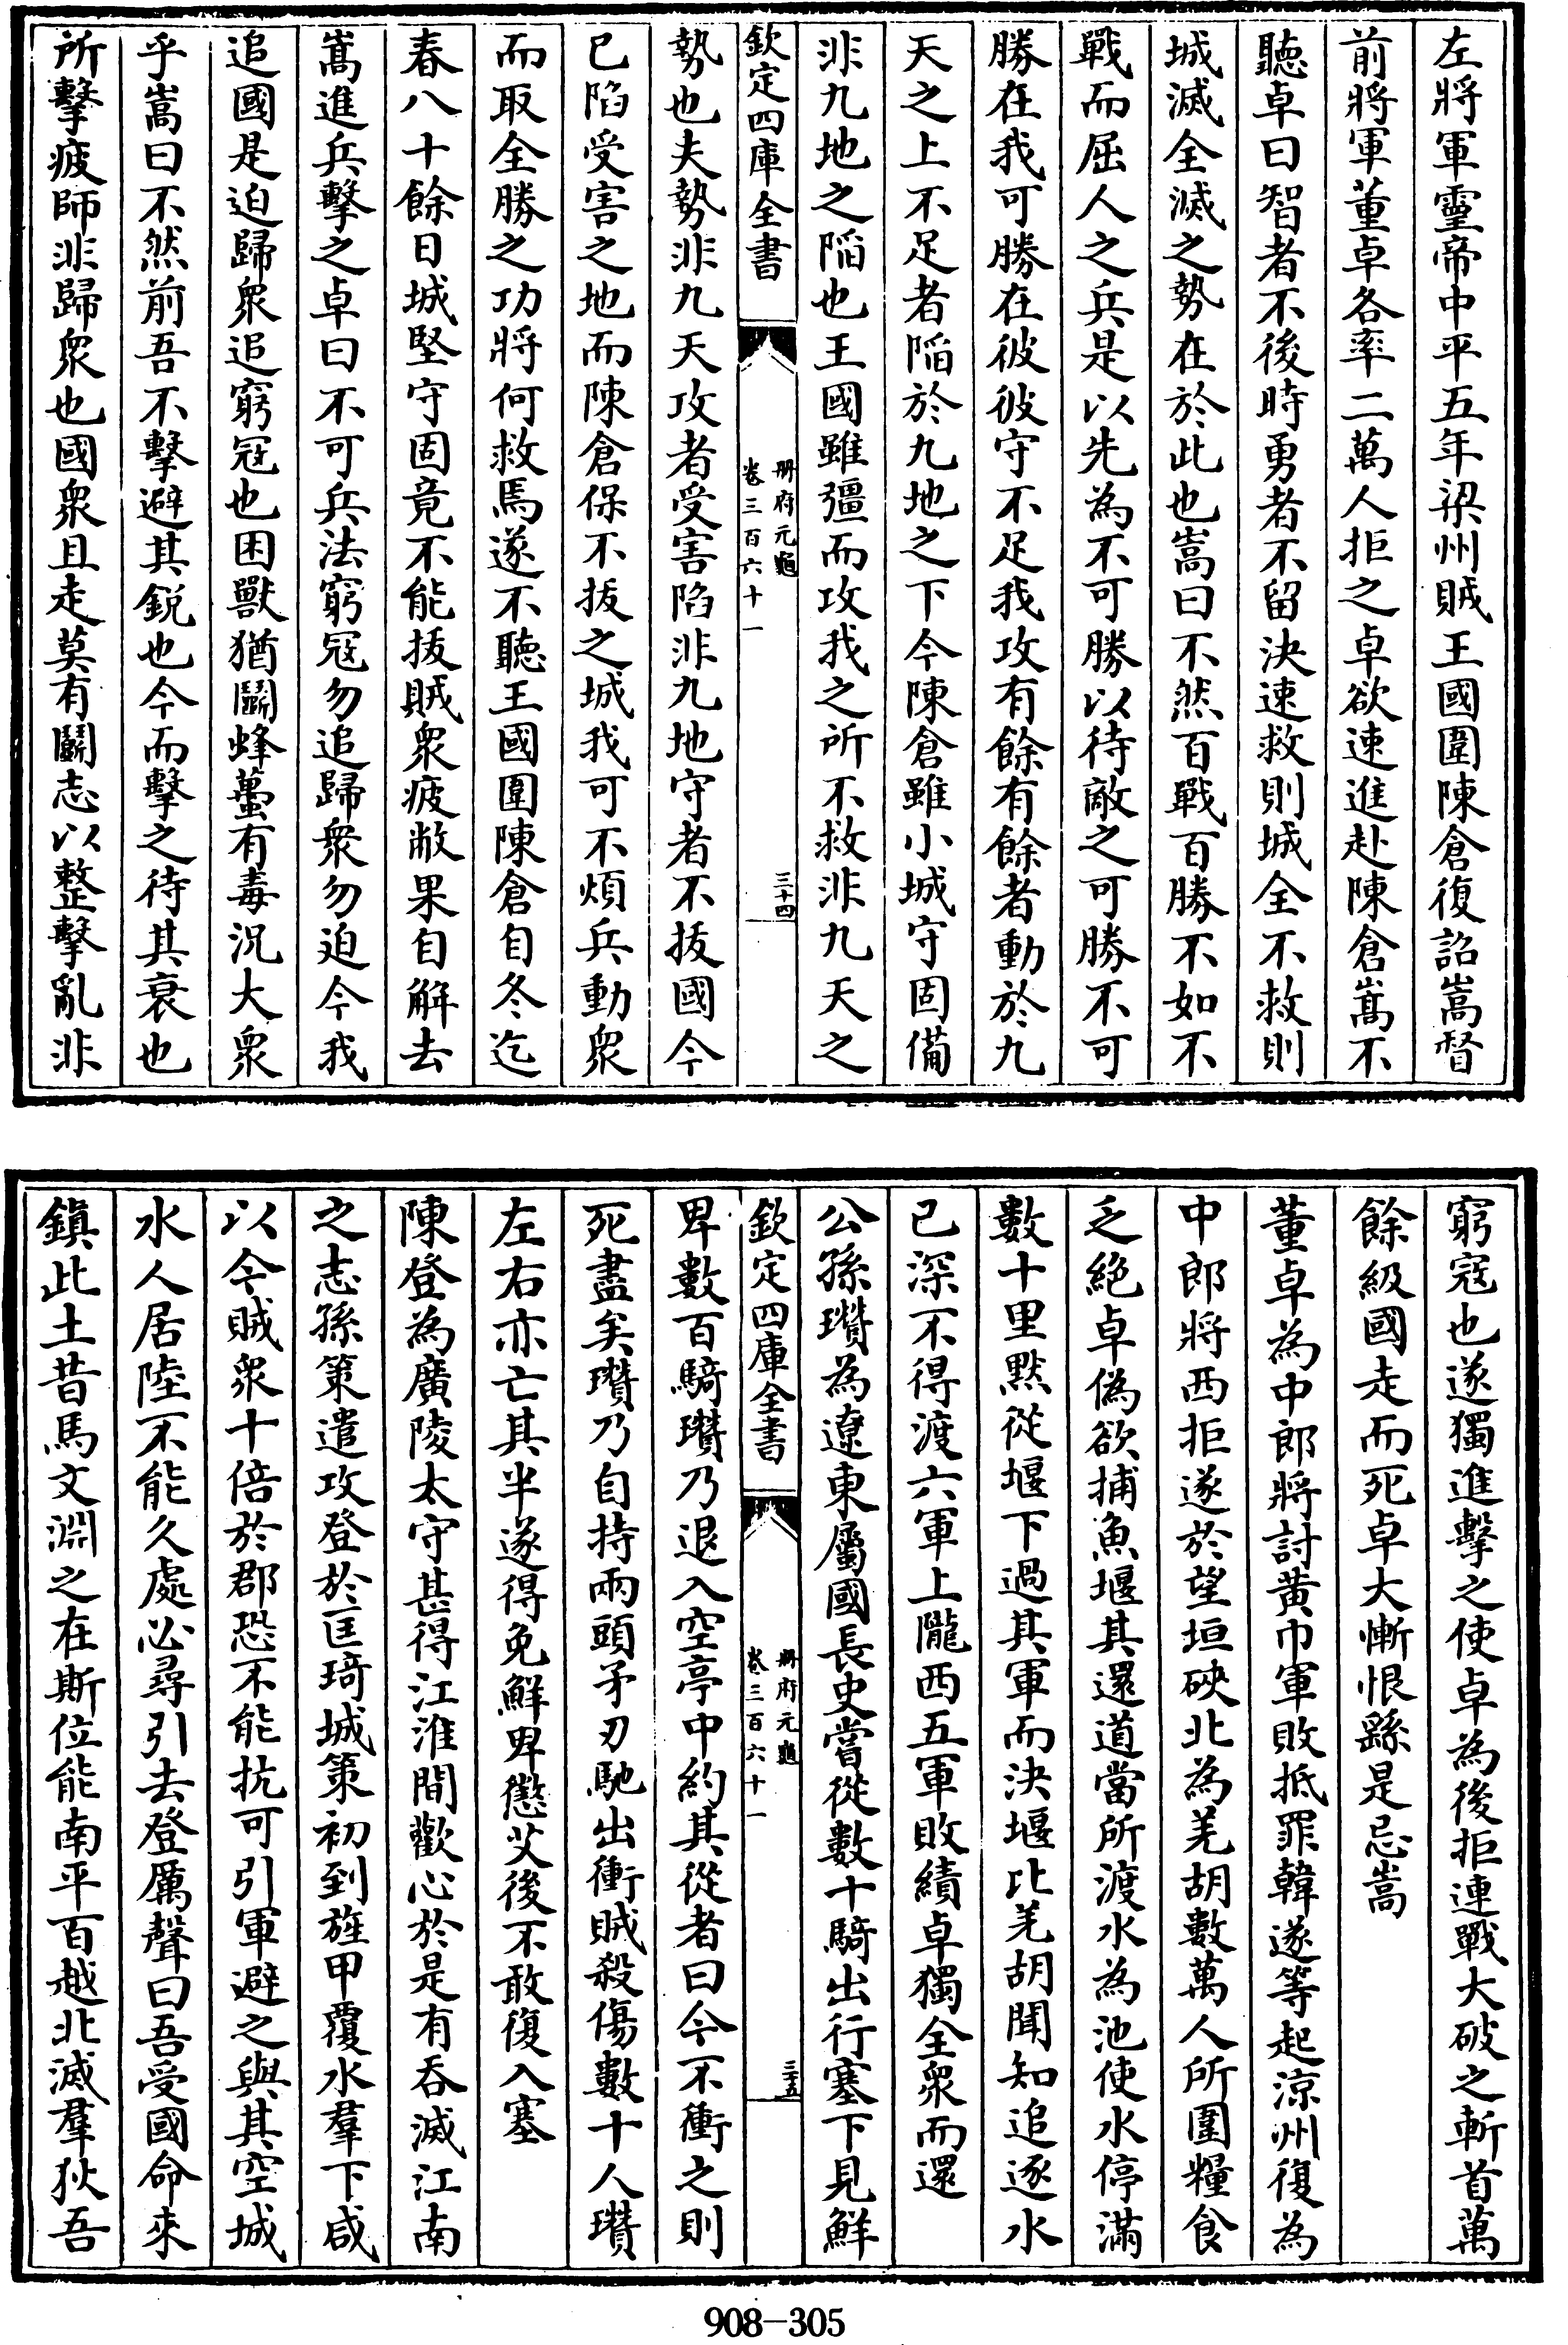 左將軍靈帝中平五年梁州賊王國圍陳倉復詔嵩督
前將軍董卓各率二萬人拒之卓欲速進赴陳倉嵩不
聽卓曰智者不後時勇者不留決速救則城全不救則
城滅全滅之勢在於此也嵩曰不然百戰百勝不如不
戰而屈人之兵是以先為不可勝以待敵之可勝不可
勝在我可勝在彼彼守不足我攻有餘有餘者動於九
天之上不足者陷於九地之下今陳倉雖小城守固備
非九地之陷也王國雖彊而攻我之所不救非九天之
欽定四庫全書
冊府元龜
卷三百六十一
三十四
勢也夫勢非九天攻者受害陷非九地守者不拔國今
已陷受害之地而陳倉保不拔之城我可不煩兵動衆
而取全勝之功將何救焉遂不聽王國圍陳倉自冬迄
春八十餘日城堅守固竟不能拔賊衆疲敝果自解去
嵩進兵擊之卓曰不可兵法窮寇勿追歸衆勿迫今我
追國是迫歸衆追窮寇也困獸猶鬬蜂蠆有毒況大衆
乎嵩曰不然前吾不擊避其鋭也今而擊之待其衰也
所擊疲師非歸衆也國衆且走莫有鬬志以整擊亂非
窮寇也遂獨進擊之使卓為後拒連戰大破之斬首萬
餘級國走而死卓大慚恨繇是忌嵩
董卓為中郎將討黃巾軍敗抵罪韓遂等起涼州復為
中郎將西拒遂於望垣硤北為羌胡數萬人所圍糧食
乏絶卓偽欲捕魚堰其還道當所渡水為池使水停滿
數十里黙從堰下過其軍而決堰比羌胡聞知追逐水
已深不得渡六軍上隴西五軍敗績卓獨全衆而還
公孫瓚為遼東屬國長史嘗從數十騎出行塞下見鮮
欽定四庫全書
冊府元龜
卷三百六十一
三十五
卑數百騎瓚乃退入空亭中約其從者曰今不衝之則
死盡矣瓚乃自持兩頭矛刃馳出衝賊殺傷數十人瓚
左右亦亡其半遂得免鮮卑懲艾後不敢復入塞
陳登為廣陵太守甚得江淮間歡心於是有吞滅江南
之志孫策遣攻登於匡琦城策初到旌甲覆水羣下咸
以今賊衆十倍於郡恐不能抗可引軍避之與其空城
水人居陸不能久處必尋引去登厲聲曰吾受國命來
鎮此土昔馬文淵之在斯位能南平百越北滅羣狄吾
908-305